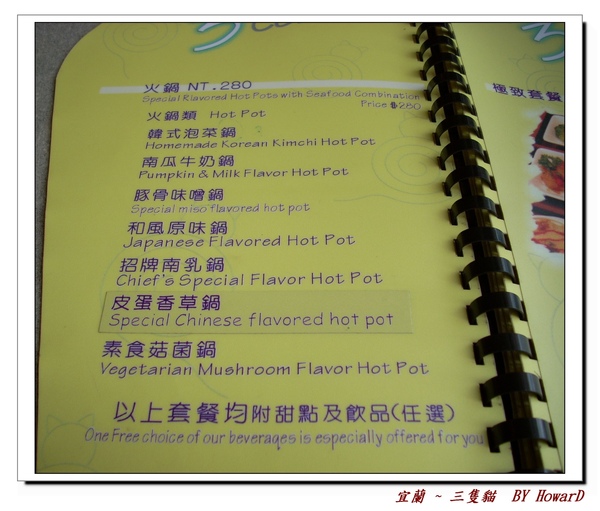 火鍋 NT.280
Special Rlavored Hot Pots with Seafood Combination
Price $280
火鍋類 Hot Pot
韓式泡菜鍋
Homemade Korean Kimchi Hot Pot
南瓜牛奶鍋
Pumpkin & Milk Flavor Hot Pot
豚骨味噌鍋
Special miso flavored hot pot
和風原味鍋
Japanese Flavored Hot Pot
招牌南乳鍋
Chief's Special Flavor Hot Pot
皮蛋香草鍋
Special Chinese flavored hot pot
素食菇菌鍋
Vegetarian Mushroom Flavor Hot Pot
以上套餐均附甜點及飲品(任選)
One Free choice of our beverages is especially offered for you
極致套餐
宜蘭 ~ 三隻貓 BY HowarD